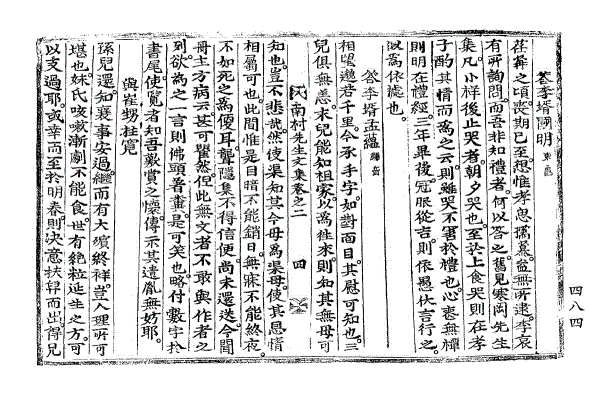 答李壻國明
荏苒之頃喪期已至想惟孝思孺慕益無所逮李哀
有所詢問而吾非知禮者何以答之舊見寒岡先生
集凡小祥後止哭者朝夕哭也至於上食哭則在孝
子酌其情而爲之云則雖哭不害於禮也心喪無禫
則明在禮經三年畢後冠服從吉則依愚伏吉行之
以爲依據也
答李壻孟蘊
相望邈若千里今承手字如對面目其慰可知也三
兒俱無恙末兒能知祖家以爲往來則知其無母可
南村先生文集卷之二 四
知也豈不悲哉然使渠知其今母爲渠母使其恩情
相屬可也此間惟是目暗不能銷日無寐不能終夜
不如死之爲便耳聾隱集不得信便尚未還送今聞
毋主方病云甚可瞿然但此無文者不敢與作者之
到欲爲之一言則佛頭着畫是可笑也略付數字於
書尾使覽者知吾歎賞之懷傳示其遺胤無妨耶
與崔甥柱寬
孫兒還知襄事安過繼而有大殯終祥豈人理所可
堪也妹氏咳嗽漸劇不能食世有絶粒延生之方可
以支過耶或幸而至於明春則決意扶舁而出得兒
四八四